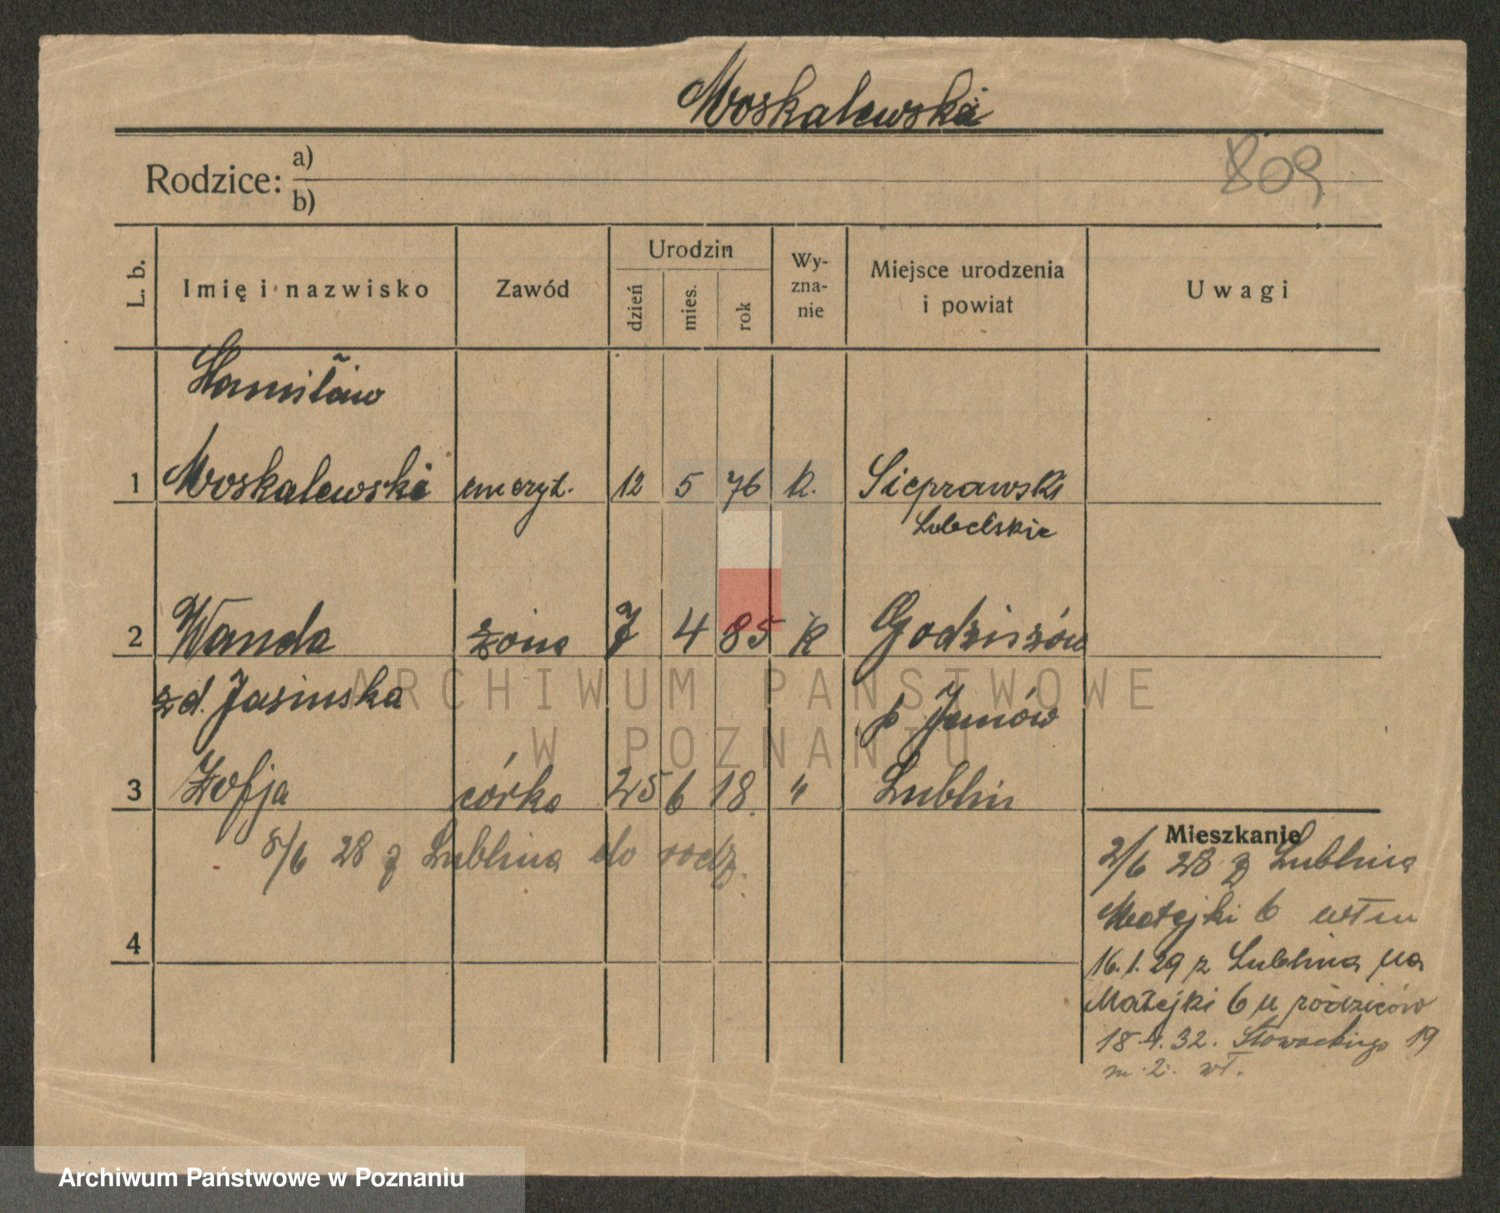 Moskalewski
Rodzice: a)
b)
809
L. b.
Imię i nazwisko
Zawód
Urodzin
dzień
mies.
rok
Wy-
zna-
nie
Miejsce urodzenia
i powiat
Uwagi
Stanisław
1 Moskalewski emeryt. 12 5 76 k. Sieprawski
Lubelskie
2 Wanda żona 7 4 85 k Godziszów
zd. Jasinska p Janów
3 Zofja córka 25 6 18. " Lublin
8/6 28 z Lublina do rodz.
4
Mieszkanie
2/6 28 z Lublina
Matejki 6
16.1.29 z Lublina na
Matejki 6 u rodziców
18.4.32. Słowackiego 19
m. 2. wł.
ARCHIWUM PAŃSTWOWE
W POZNANIU
Archiwum Państwowe w Poznaniu